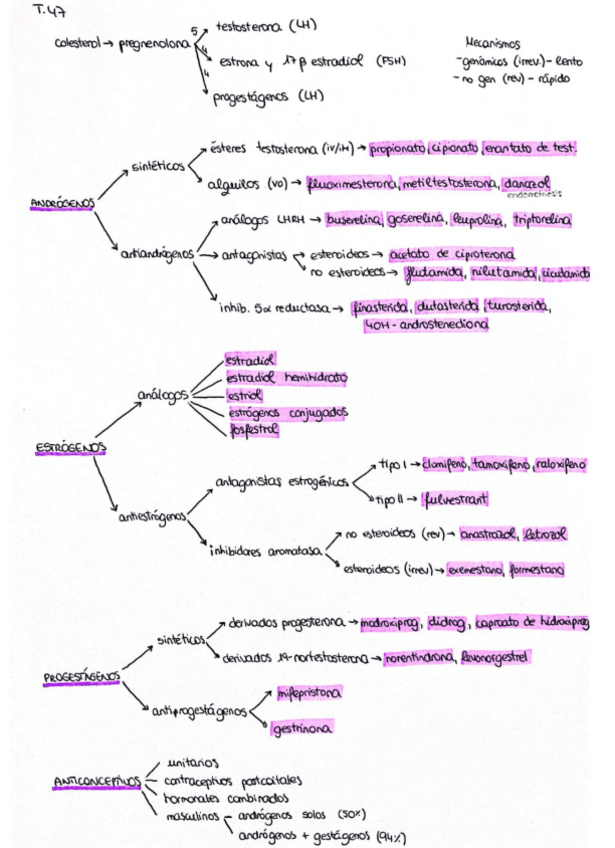 T.47
testosterona (LH)
5
colesterol → pregnenolona
4
estrona y 17β estradiol (FSH)
4
progestágenos (LH)
Mecanismos
- genómicos (irrev.) - lento
- no gen (rev) - rápido
ésteres testosterona (iv/iH) → propionato, cipionato, enantato de test.
sintéticos
alquilos (vo) → fluoximesterona, metiltestosterona, danazol
endometriosis
ANDRÓGENOS
análogos LHRH → buserelina, goserelina, leuprolina, triptorelina
antiandrógenos → antagonistas
esteroideos → acetato de ciproterona
no esteroideos → flutamida, nilutamida,
inhib. 5α reductasa → finasterida, dutasterida, turosterida,
4OH-androstenediona
estradiol
estradiol hemihidrato
análogos
estriol
estrógenos conjugados
fosfestrol
ESTRÓGENOS
tipo I → clomifeno, tamoxifeno, raloxifeno
antagonistas estrogénicos
tipo II → fulvestrant
antiestrógenos
no esteroideos (rev) → anastrozol, letrozol
inhibidores aromatasa
esteroideos (irrev) → exemestano, formestano
derivados progesterona → medroxiprog, didrog, caproato de hidroxiprog
sintéticos
derivados 19-nortestosterona → norentindrona, levonorgestrel
PROGESTÁGENOS
mifepristona
antiprogestágenos
gestrinona
unitarios
ANTICONCEPTIVOS
contraceptivos postcoitales
hormonales combinados
masculinos
andrógenos solos (50%)
andrógenos + gestágenos (94%)